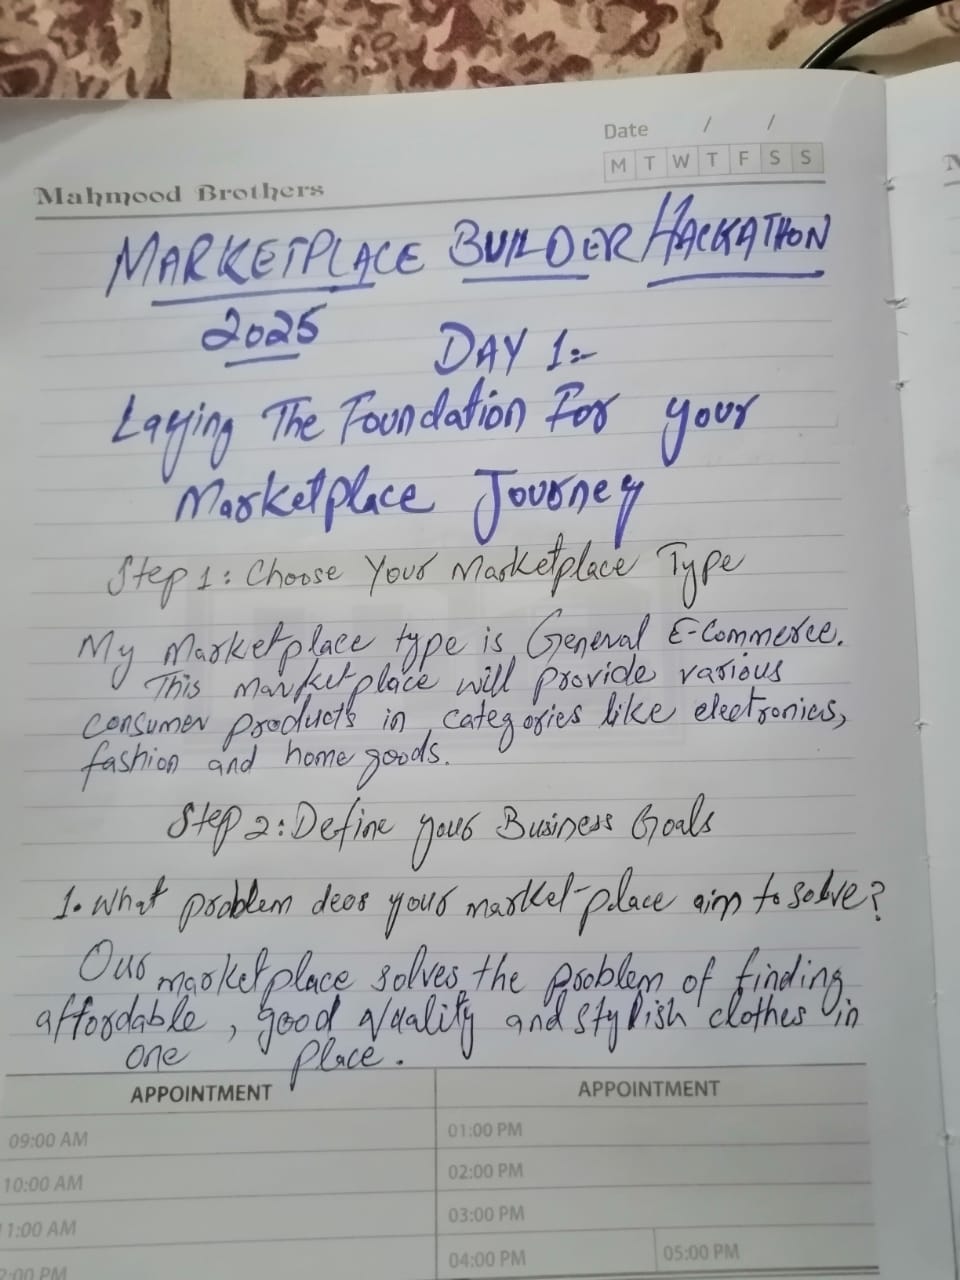 Date / /
M T W T F S S
Mahmood Brothers
MARKETPLACE BUILDER HACKATHON
2025 DAY 1:-
Laying The Foundation For your
Marketplace Journey
Step 1: Choose Your Marketplace Type
My Marketplace type is General E-Commerce.
This marketplace will provide various
consumer products in categories like electronics,
fashion and home goods.
Step 2: Define your Business Goals
1. What problem deos your market-place aim to solve?
Our marketplace solves the problem of finding
affordable, good quality and stylish clothes in
one place.
APPOINTMENT APPOINTMENT
09:00 AM 01:00 PM
10:00 AM 02:00 PM
11:00 AM 03:00 PM
2:00 PM 04:00 PM 05:00 PM